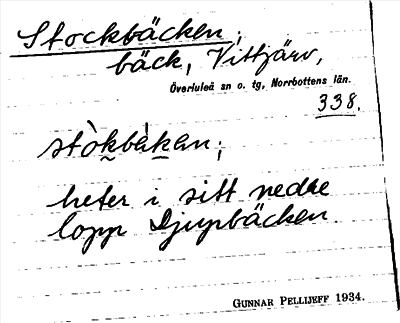 Stockbäcken;
bäck, Vittjärv,
Överluleå sn o. tg, Norrbottens län.
338.
stòkbä̀kan;
heter i sitt nedre
lopp Djupbäcken.
GUNNAR PELLIJEFF 1934.